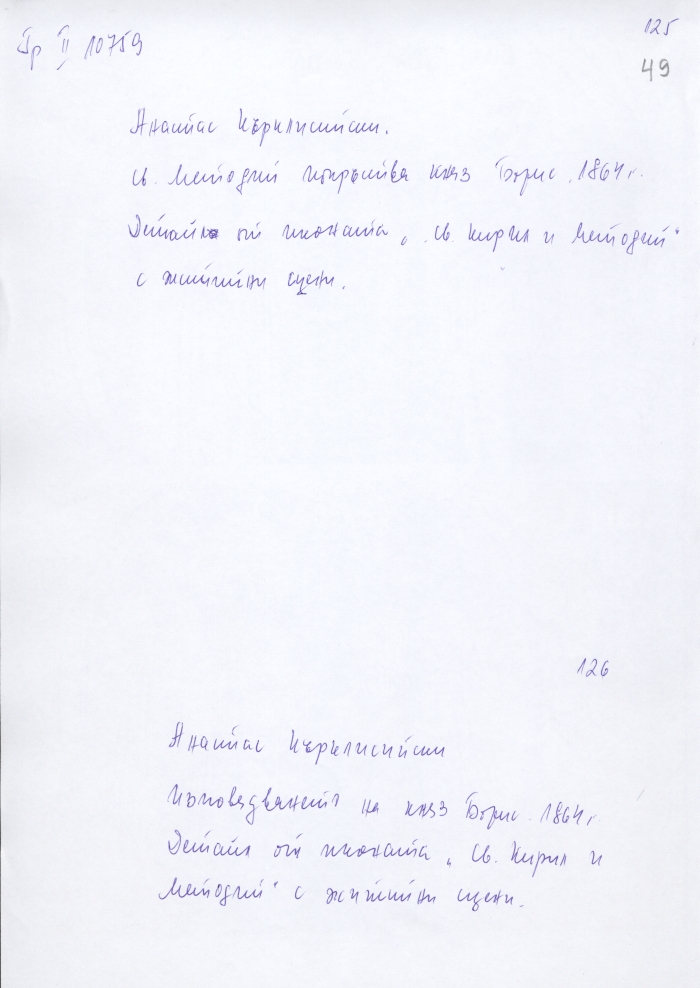 Гр II 10759
125
49
Анастас Кърклисийски.
Св. Методий покръства княз Борис, 1864 г.
Детайл от иконата „Св. Кирил и Методий“
с житийни сцени.
126
Анастас Кърклисийски
Изповядването на княз Борис. 1864 г.
Детайл от иконата „Св. Кирил и
Методий“ с житийни сцени.